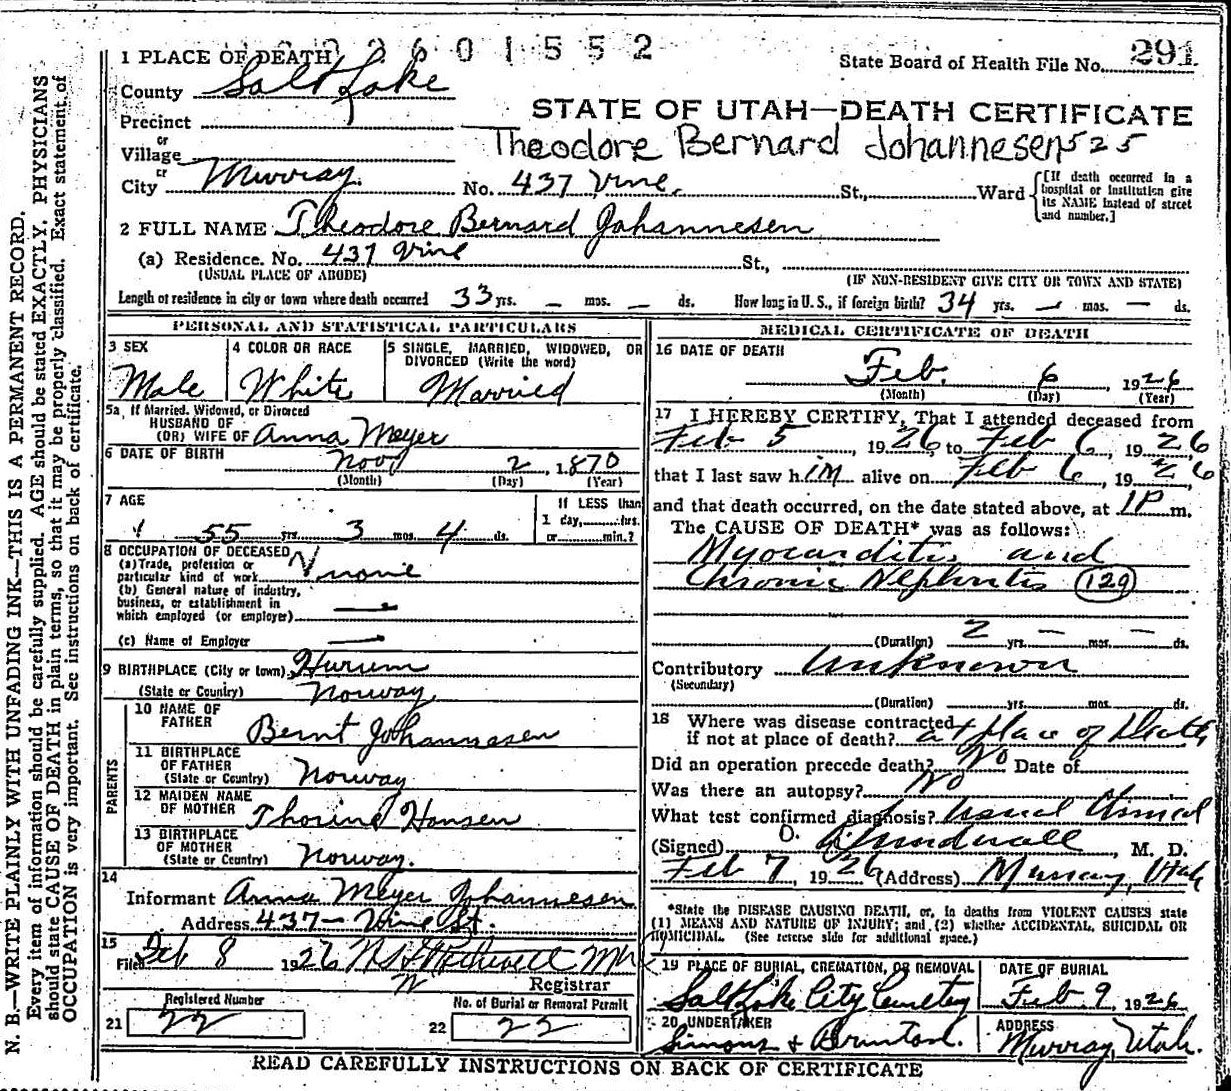 2601552
1 PLACE OF DEATH
State Board of Health File No. 291
County Salt Lake
STATE OF UTAH—DEATH CERTIFICATE
Precinct
Theodore Bernard Johannesen 525
or
Village
or
City Murray. No. 437 Vine. St., Ward
[If death occurred in a hospital or institution give its NAME instead of street and number.]
2 FULL NAME Theodore Bernard Johannesen
(a) Residence. No. 437 Vine St.,
(USUAL PLACE OF ABODE) (IF NON-RESIDENT GIVE CITY OR TOWN AND STATE)
Length of residence in city or town where death occurred 33 yrs. — mos. — ds. How long in U. S., if foreign birth? 34 yrs. — mos. — ds.
PERSONAL AND STATISTICAL PARTICULARS
3 SEX
Male
4 COLOR OR RACE
White
5 SINGLE, MARRIED, WIDOWED, OR
DIVORCED (Write the word)
Married
5a. If Married, Widowed, or Divorced
HUSBAND OF
(OR) WIFE OF Anna Meyer
6 DATE OF BIRTH Nov 2, 1870
(Month) (Day) (Year)
7 AGE
55 yrs. 3 mos. 4 ds.
If LESS than
1 day, hrs.
or min.?
8 OCCUPATION OF DECEASED
(a) Trade, profession or
particular kind of work none
(b) General nature of industry,
business, or establishment in
which employed (or employer) —
(c) Name of Employer —
9 BIRTHPLACE (City or town) Hurum
(State or Country) Norway
PARENTS
10 NAME OF
FATHER Bernt Johannesen
11 BIRTHPLACE
OF FATHER
(State or Country) Norway
12 MAIDEN NAME
OF MOTHER Thorine Hansen
13 BIRTHPLACE
OF MOTHER
(State or Country) Norway.
14
Informant Anna Meyer Johannesen
Address 437— Vine St.
15
Filed Feb 8 1926
Registrar
Registered Number
21 22
No. of Burial or Removal Permit
22 22
MEDICAL CERTIFICATE OF DEATH
16 DATE OF DEATH
Feb. 6, 1926
(Month) (Day) (Year)
17 I HEREBY CERTIFY, That I attended deceased from
Feb 5, 1926, to Feb 6, 1926
that I last saw him alive on Feb 6, 1926
and that death occurred, on the date stated above, at 1P m.
The CAUSE OF DEATH* was as follows:
Myocarditis and
Chronic Nephritis (129)
(Duration) 2 yrs. — mos. — ds.
Contributory Unknown
(Secondary)
(Duration) yrs. mos. ds.
18 Where was disease contracted
if not at place of death? at place of Death
Did an operation precede death? No Date of
Was there an autopsy? No
What test confirmed diagnosis? usual
(Signed) , M. D.
Feb 7, 1926 (Address) Murray, Utah
*State the DISEASE CAUSING DEATH, or, in deaths from VIOLENT CAUSES state
(1) MEANS AND NATURE OF INJURY; and (2) whether ACCIDENTAL, SUICIDAL OR
HOMICIDAL. (See reverse side for additional space.)
19 PLACE OF BURIAL, CREMATION, OR REMOVAL
Salt Lake City Cemetery
DATE OF BURIAL
Feb 9, 1926
20 UNDERTAKER
Simons & Brinton.
ADDRESS
Murray, Utah.
READ CAREFULLY INSTRUCTIONS ON BACK OF CERTIFICATE
N. B.—WRITE PLAINLY WITH UNFADING INK—THIS IS A PERMANENT RECORD.
Every item of information should be carefully supplied. AGE should be stated EXACTLY. PHYSICIANS
should state CAUSE OF DEATH in plain terms, so that it may be properly classified. Exact statement of
OCCUPATION is very important. See instructions on back of certificate.